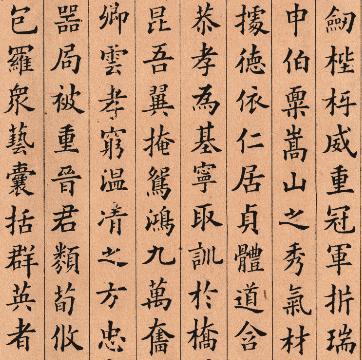 劒陛析威重冠軍折瑞
申伯稟嵩山之秀氣材
據德依仁居貞體道含
恭孝為基寧取訓於橋
昆吾翼掩鴛鴻九萬奮
卿雲孝窮温凊之方忠
器局被重晉君類荀攸
包羅衆藝囊括群英者